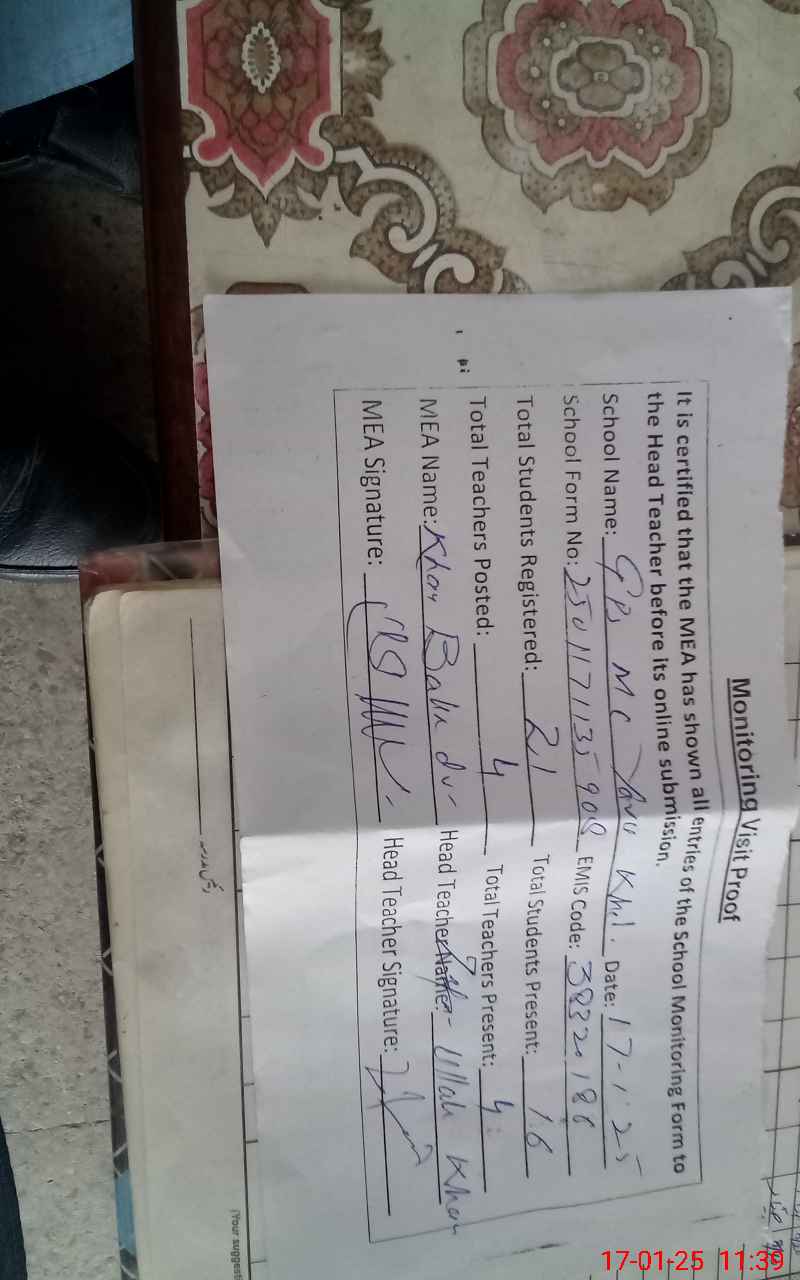 Monitoring Visit Proof
It is certified that the MEA has shown all entries of the School Monitoring Form to
the Head Teacher before its online submission.
School Name: GPS MC Khel. Date: 17-1-25
School Form No: EMIS Code:
Total Students Registered: 21 Total Students Present: 16
Total Teachers Posted: 4 Total Teachers Present: 4
MEA Name: Khan Head Teacher Name: Ullah Khan
MEA Signature: Head Teacher Signature:
(Your suggest
17-01-25 11:39